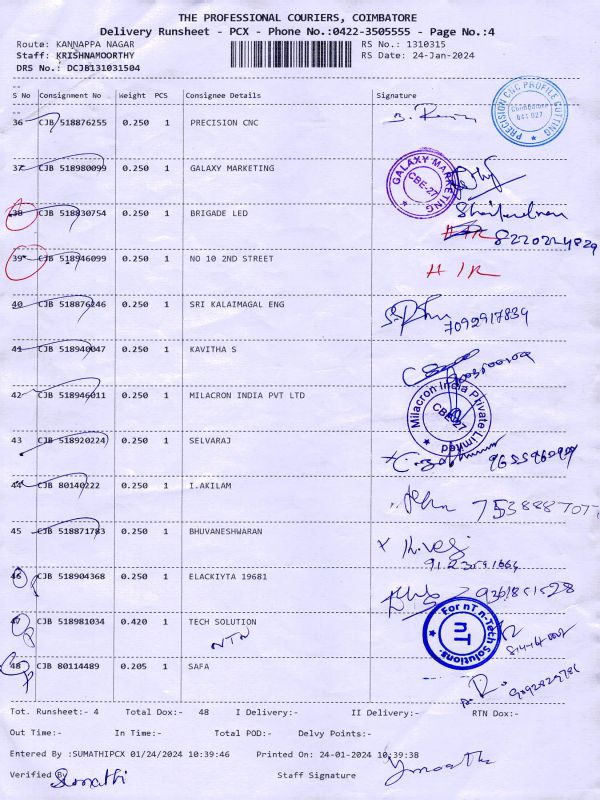 THE PROFESSIONAL COURIERS, COIMBATORE
Delivery Runsheet - PCX - Phone No.:0422-3505555 - Page No.:4
Route: KANNAPPA NAGAR RS No.: 1310315
Staff: KRISHNAMOORTHY RS Date: 24-Jan-2024
DRS No.: DCJB131031504
S No Consignment No Weight PCS Consignee Details Signature
36 CJB 518876255 0.250 1 PRECISION CNC
PRECISION CNC PROFILE CUTTING Coimbatore 641 027
37 CJB 518980099 0.250 1 GALAXY MARKETING
GALAXY MARKETING CBE-27
38 CJB 518830754 0.250 1 BRIGADE LED
39 CJB 518946099 0.250 1 NO 10 2ND STREET
40 CJB 518876246 0.250 1 SRI KALAIMAGAL ENG 7092917834
41 CJB 518940047 0.250 1 KAVITHA S
42 CJB 518946011 0.250 1 MILACRON INDIA PVT LTD
Milacron India Private Limited CBE-27
43 CJB 518920224 0.250 1 SELVARAJ
44 CJB 80140222 0.250 1 I.AKILAM
45 CJB 518871783 0.250 1 BHUVANESHWARAN
46 CJB 518904368 0.250 1 ELACKIYTA 19681
47 CJB 518981034 0.420 1 TECH SOLUTION
For nT n-Tech Solutions nT
48 CJB 80114489 0.205 1 SAFA
Tot. Runsheet:- 4 Total Dox:- 48 I Delivery:- II Delivery:- RTN Dox:-
Out Time:- In Time:- Total POD:- Delvy Points:-
Entered By :SUMATHIPCX 01/24/2024 10:39:46 Printed On: 24-01-2024 10:39:38
Verified By Sumathi Staff Signature